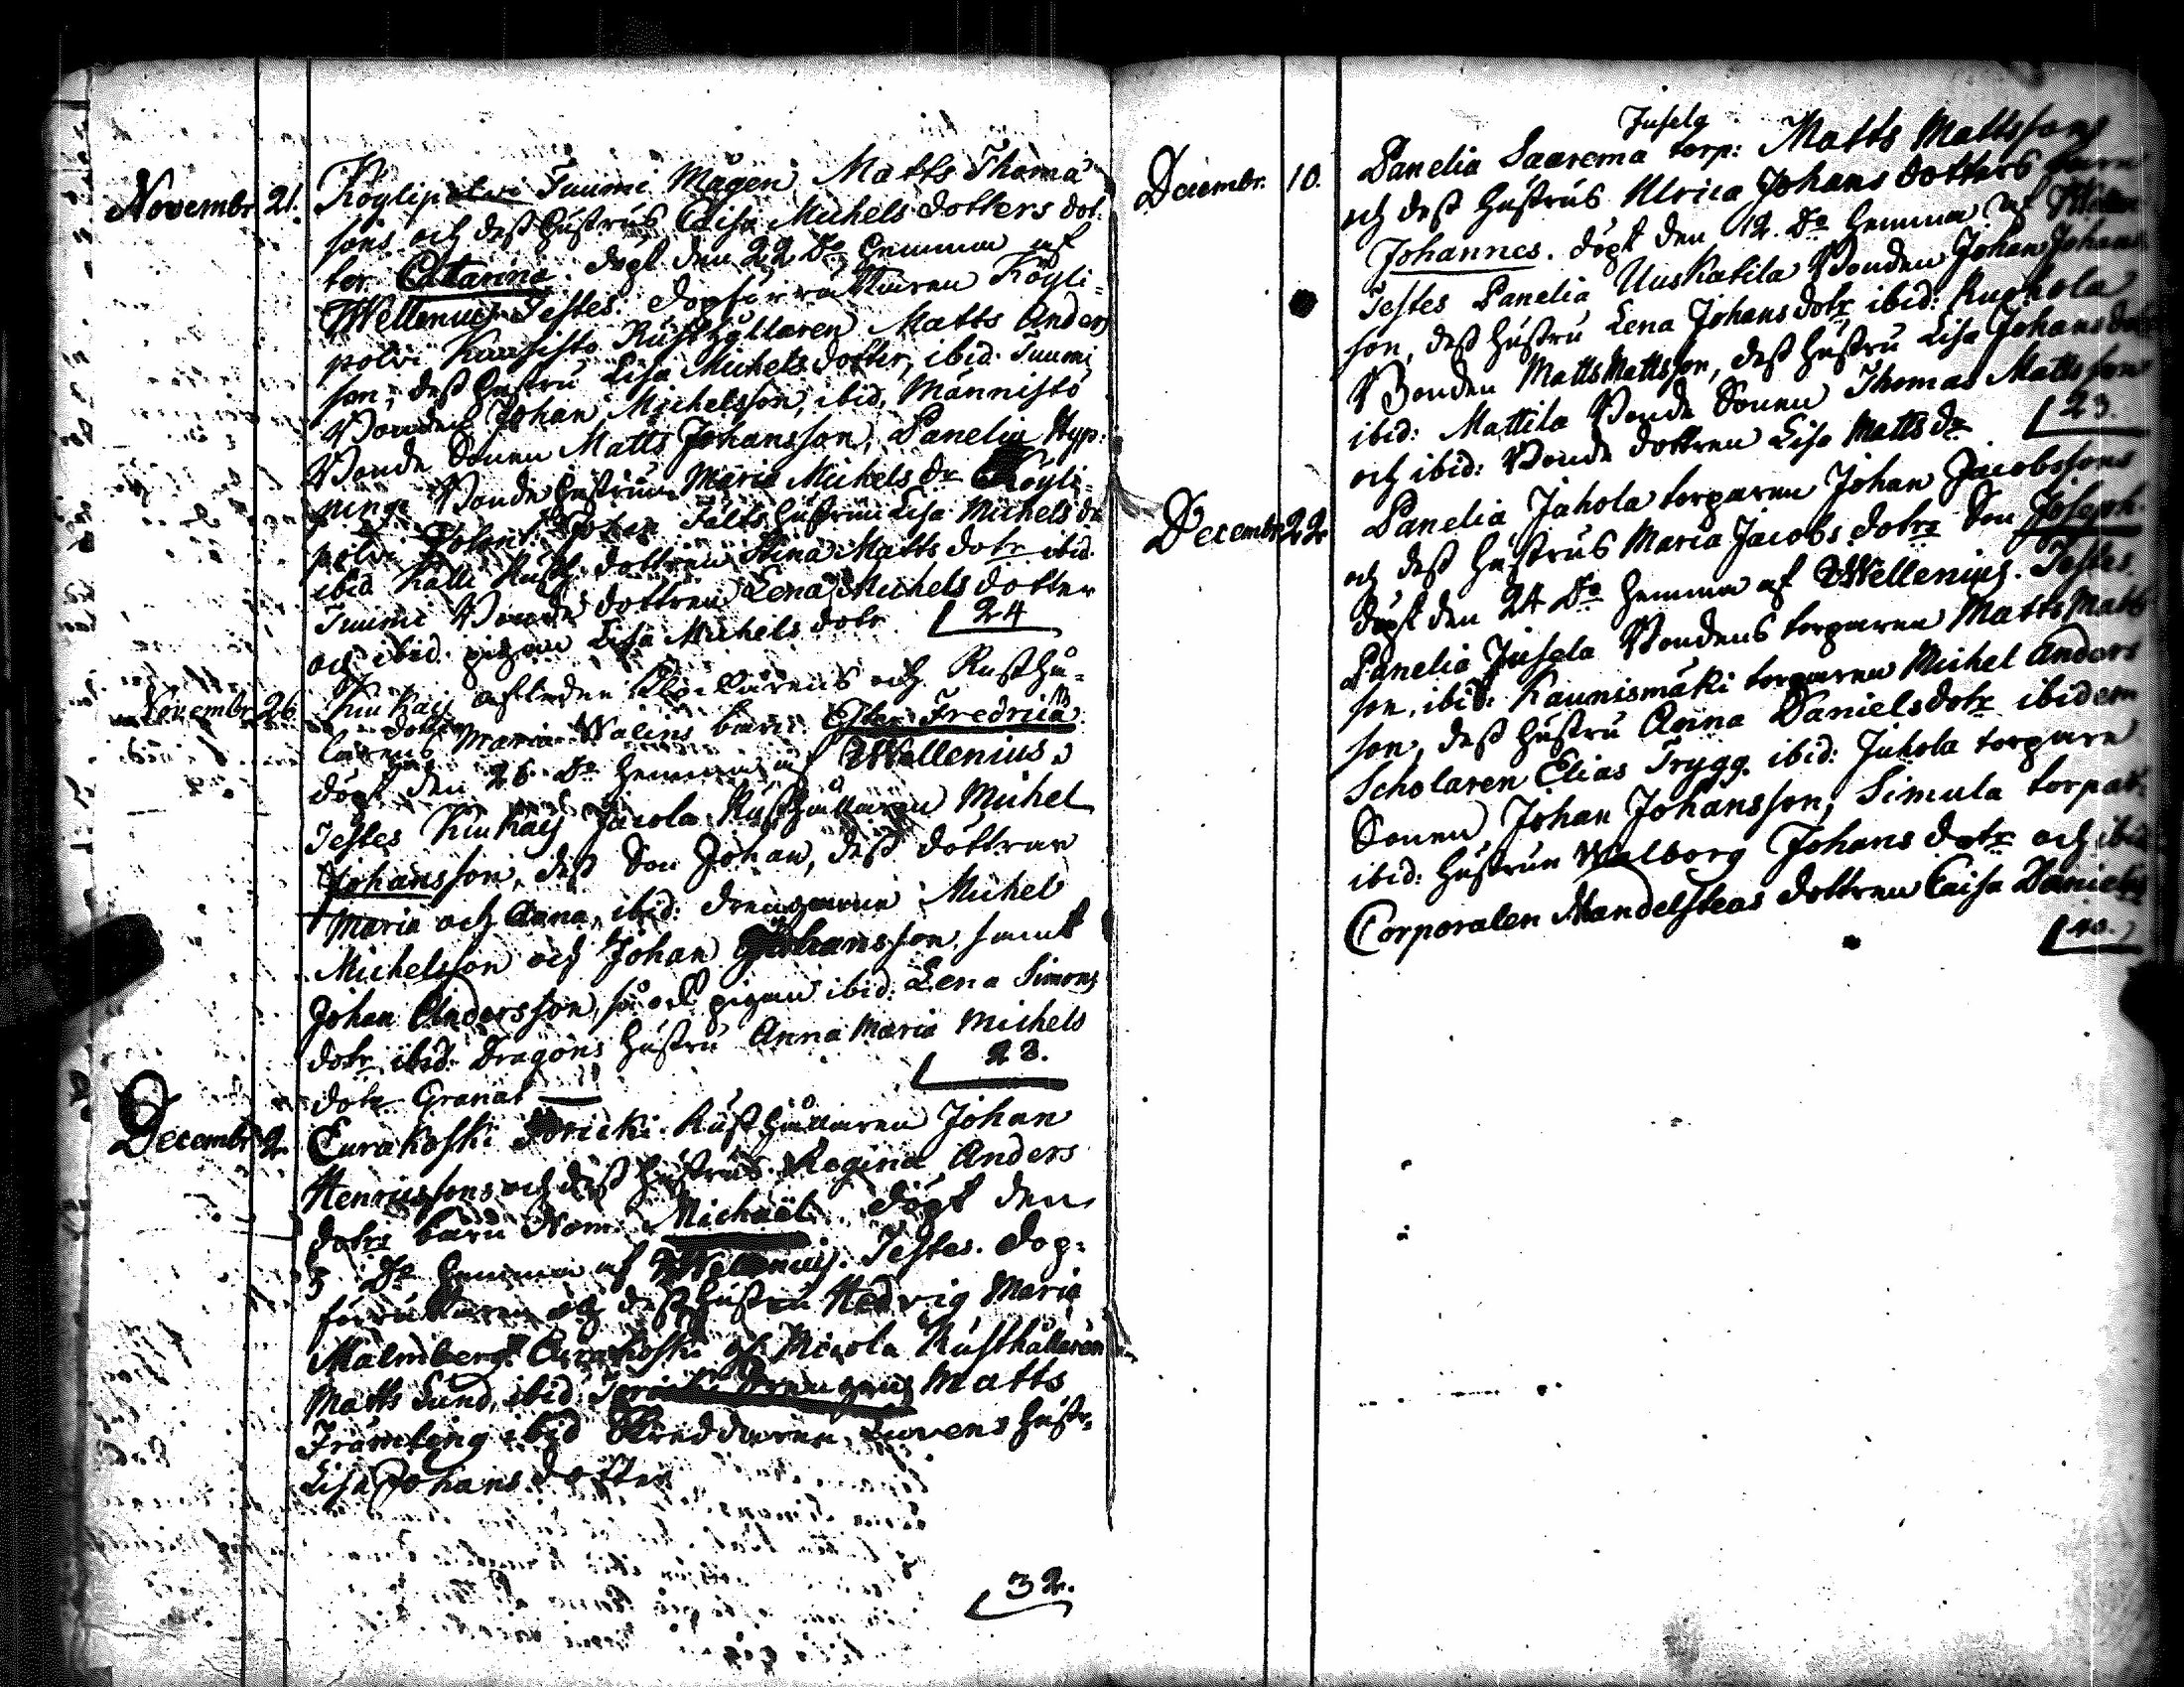 Novembr 21. Köylipolvi Tuumi Mågen Matts Thomæ
sons och dess hustrus Lisa Michels dotters dot-
ter Catarina. döpt den 22 Do hemma af
WWellenius. Testes. Dopförrättaren Köyli-
polvi Kaasisto Rusthållaren Matts Anders
son, dess hustru Lisa Michelsdotter, ibid. Tuumi
Bonden Johan Michelsson, ibid. Männistö
Bonde Sonen Matts Johansson, Panelia Hyp-
pinge Bonde hustrun Maria Michels dr Köyli-
polvi hustrun Lisa Michels dr
ibid Källi Rusth. dottren Stina Matts dotr ibid.
Tuumi Bonde dottren Lena Michels dotter
och ibid. pigan Lisa Michels dotr 24
Novembr 26. Kiukais afledne Klockarens och Rusthå-
larens dotr Maria Walins barn Ester Fredrica.
döpt den 26 Do hemma af WWellenius.
Testes Kiukais Jacola Rusthållaren Michel
Johansson, dess Son Johan, dess döttrar
Maria och Anna, ibid: drengarne Michel
Michelsson och Johan Johansson, samt
Johan Andersson, så ock pigan ibid: Lena Simons
dotr ibid: Dragons hustru Anna Maria Michels
dotr Granat 23.
Decembr 2. Eurakoski Rusthållaren Johan
Henricssons och dess hustrus Regina Anders
dotrs barn Nom. Michaël. döpt den
3 Do hemma af WWellenius. Testes. Dop-
förrättaren och dess hustru Hedvig Maria
Malmberg. Eurakoski Micola Rusthållaren
Matts Lund, ibid: Matts
Främling ibid Skreddaren hustr.
Lisa Johans dotter
32.
Decembr. 10. Panelia Saarema torp: Matts Mattssons
Jusela
och dess hustrus Ulrica Johans dotters barn
Johannes. döpt den 12. Do hemma af
Testes Panelia Uuskatila Bonden Johan Johans
son, dess hustru Lena Johans dotr ibid:
Bonden Matts Mattsson, dess hustru Lisa Johans dotr
ibid: Mattila Bonde Sonen Thomas Mattsson
och ibid: Bonde dottren Lisa Matts dr 23.
Decembr 22. Panelia Juhola torparen Johan Jacobssons
och dess hustrus Maria Jacobs dotrs Son Joseph.
döpt den 24 Do hemma af WWellenius. Testes.
Panelia Jusela Bondens torparen Matts Matts
son, ibid: Kaunismäki torparen Michel Anders
son, dess hustru Anna Danielsdotr ibidem
Scholaren Elias Trygg. ibid: Juhola torpare
Sonen Johan Johansson, Simula torpar.
ibid: hustrun Walborg Johans dotr och ibid
Corporalen Mandelsteas dottren Caisa Daniels